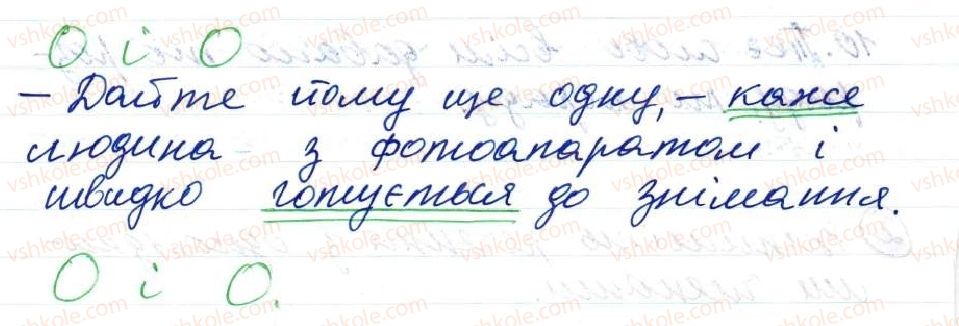 О і О
– Дайте йому ще одну, – каже
людина з фотоапаратом і
швидко готується до знімання.
О і О.